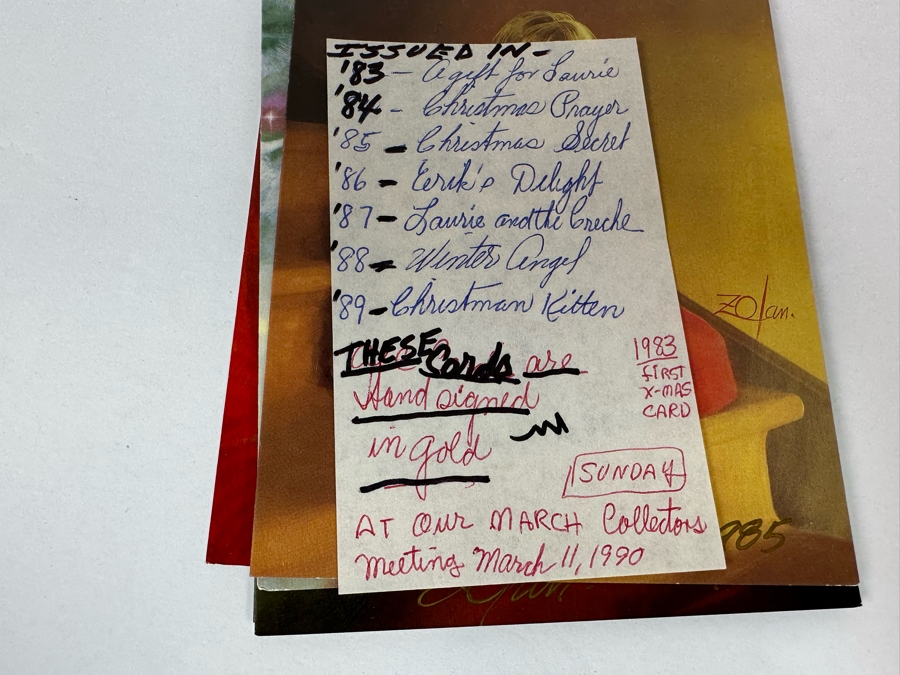 ISSUED IN-
'83 - A gift for Laurie
'84 - Christmas Prayer
'85 - Christmas Secret
'86 - Eerik's Delight
'87 - Laurie and the Creche
'88 - Winter Angel
'89 - Christman Kitten
THESE Cards are
Hand signed
in gold
1983
FIRST
X-MAS
CARD
SUNDAY
AT OUR MARCH Collectors
Meeting March 11, 1990
ZOlan.
985